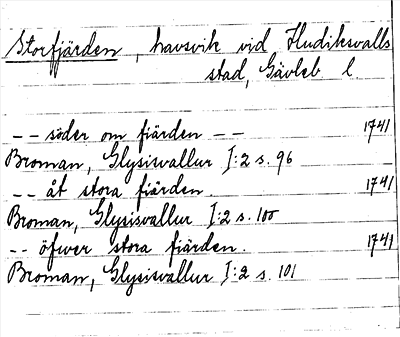 Storfjärden, havsvik vid Hudiksvalls
stad, Gävleb. l
-- söder om fiärden -- 1741
Broman, Glysisvallur I:2 s. 96
-- åt stora fiärden. 1741
Broman, Glysisvallur I:2 s. 100
-- öfwer stora fiärden. 1741
Broman, Glysisvallur I:2 s. 101